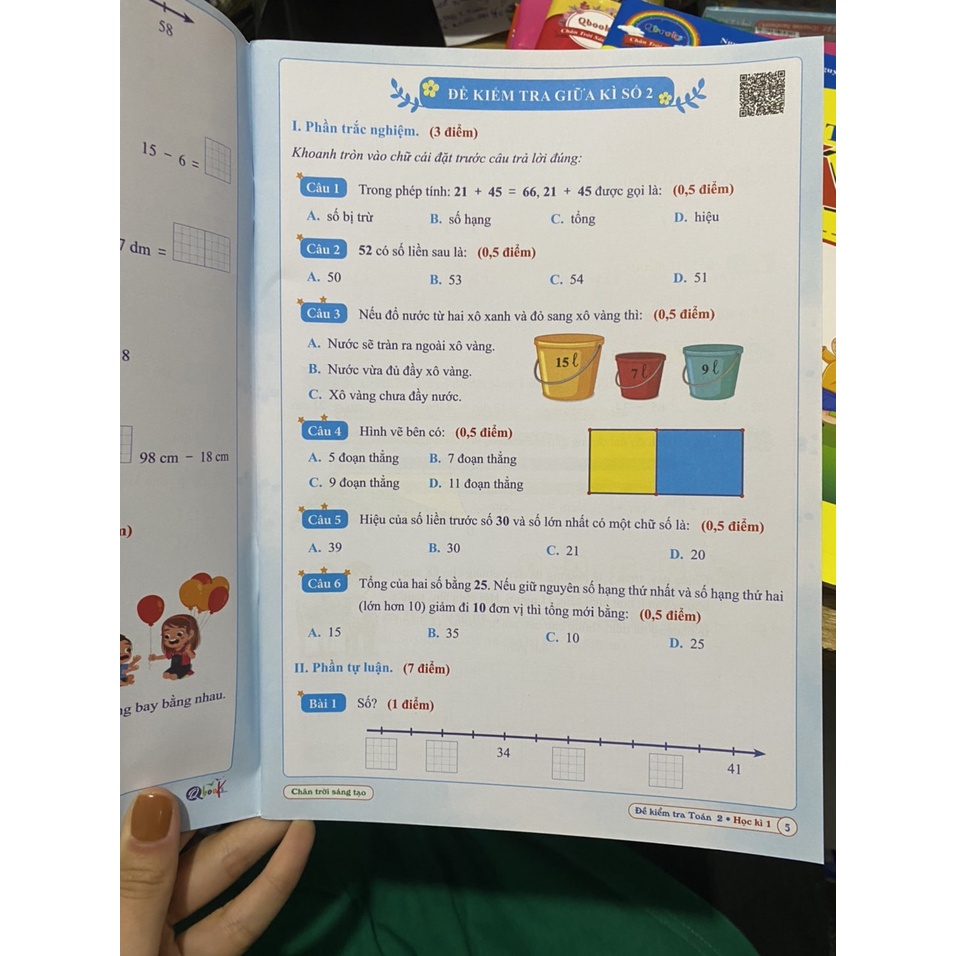 58
15 - 6 =
7 dm =
8
98 cm - 18 cm
ng bay bằng nhau.
Qbook
Qbook
Chân Trời Sán
Qbooks
ĐỀ KIỂM TRA GIỮA KÌ SỐ 2
I. Phần trắc nghiệm. (3 điểm)
Khoanh tròn vào chữ cái đặt trước câu trả lời đúng:
Câu 1 Trong phép tính: 21 + 45 = 66, 21 + 45 được gọi là: (0,5 điểm)
A. số bị trừ B. số hạng C. tổng D. hiệu
Câu 2 52 có số liền sau là: (0,5 điểm)
A. 50 B. 53 C. 54 D. 51
Câu 3 Nếu đổ nước từ hai xô xanh và đỏ sang xô vàng thì: (0,5 điểm)
A. Nước sẽ tràn ra ngoài xô vàng.
B. Nước vừa đủ đầy xô vàng.
C. Xô vàng chưa đầy nước.
15 ℓ 7 ℓ 9 ℓ
Câu 4 Hình vẽ bên có: (0,5 điểm)
A. 5 đoạn thẳng B. 7 đoạn thẳng
C. 9 đoạn thẳng D. 11 đoạn thẳng
Câu 5 Hiệu của số liền trước số 30 và số lớn nhất có một chữ số là: (0,5 điểm)
A. 39 B. 30 C. 21 D. 20
Câu 6 Tổng của hai số bằng 25. Nếu giữ nguyên số hạng thứ nhất và số hạng thứ hai
(lớn hơn 10) giảm đi 10 đơn vị thì tổng mới bằng: (0,5 điểm)
A. 15 B. 35 C. 10 D. 25
II. Phần tự luận. (7 điểm)
Bài 1 Số? (1 điểm)
34 41
Chân trời sáng tạo
Đề kiểm tra Toán 2 • Học kì 1 5